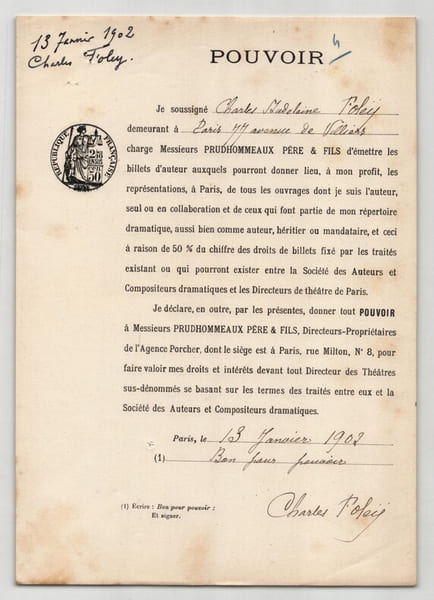 13 Janvier 1902
Charles Foley.
POUVOIR
Je soussigné Charles Foleÿ
demeurant à Paris 77 avenue de Villiers
charge Messieurs PRUDHOMMEAUX PÈRE & FILS d'émettre les
billets d'auteur auxquels pourront donner lieu, à mon profit, les
représentations, à Paris, de tous les ouvrages dont je suis l'auteur,
seul ou en collaboration et de ceux qui font partie de mon répertoire
dramatique, aussi bien comme auteur, héritier ou mandataire, et ceci
à raison de 50 % du chiffre des droits de billets fixé par les traités
existant ou qui pourront exister entre la Société des Auteurs et
Compositeurs dramatiques et les Directeurs de théâtre de Paris.
Je déclare, en outre, par les présentes, donner tout POUVOIR
à Messieurs PRUDHOMMEAUX PÈRE & FILS, Directeurs-Propriétaires
de l'Agence Porcher, dont le siège est à Paris, rue Milton, N° 8, pour
faire valoir mes droits et intérêts devant tout Directeur des Théâtres
sus-dénommés se basant sur les termes des traités entre eux et la
Société des Auteurs et Compositeurs dramatiques.
Paris, le 13 Janvier 1902
(1) Bon pour pouvoir
Charles Foleÿ
(1) Écrire : Bon pour pouvoir :
Et signer.
RÉPUBLIQUE FRANÇAISE